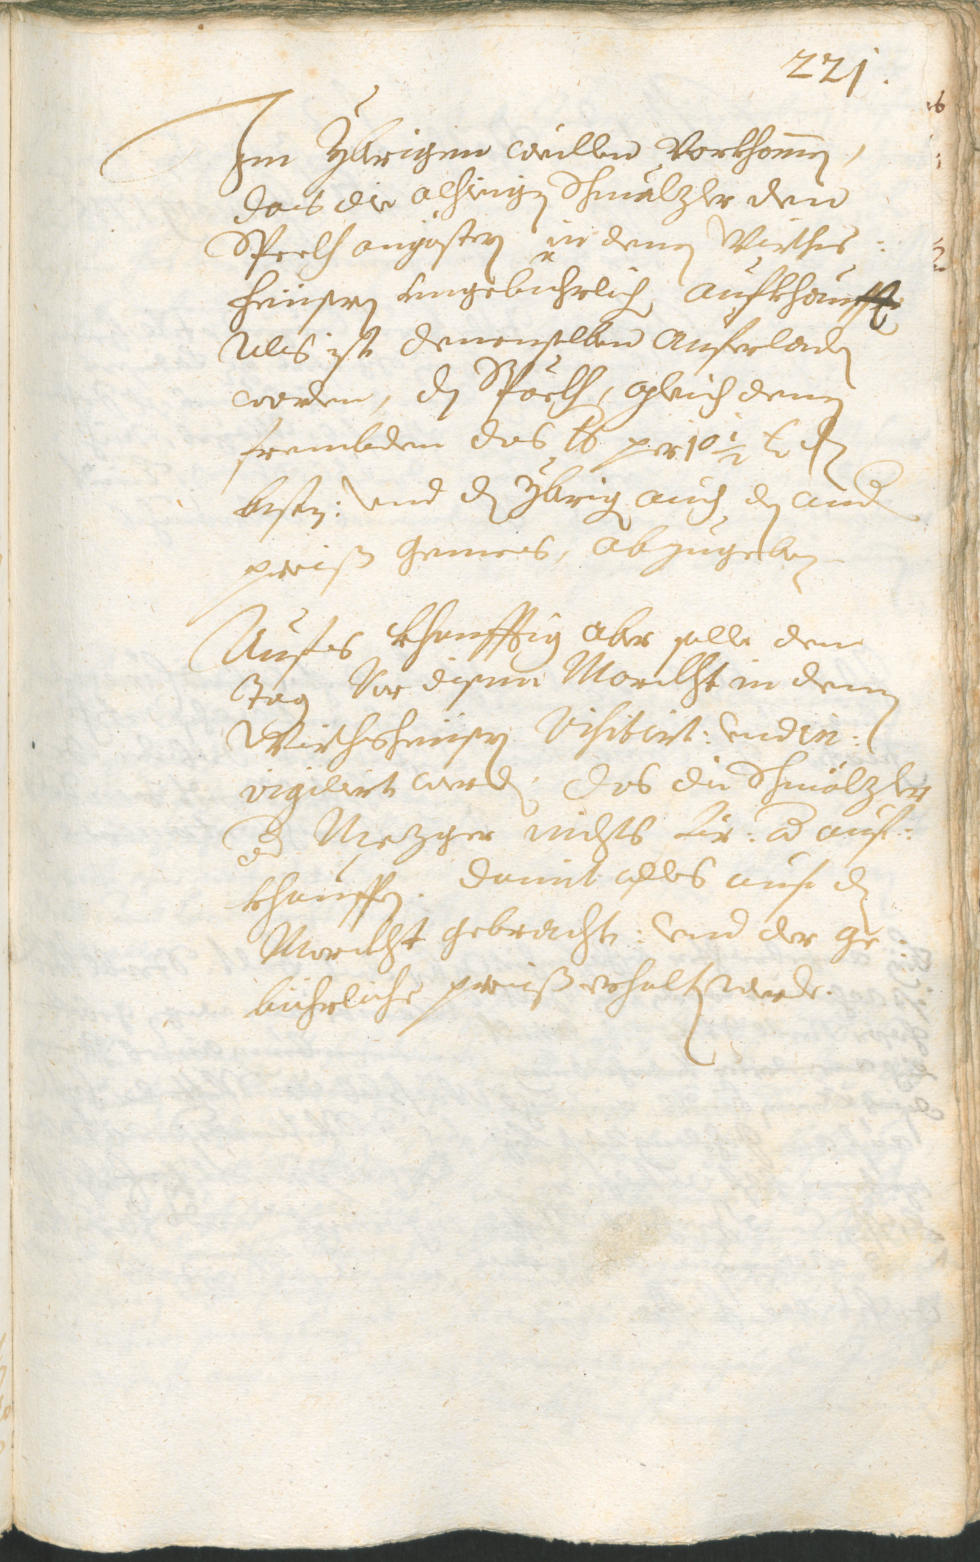 221.
Im Ybrigen weillen vorkhomen,
das die alhieige Schmalzler den
Speckh angösten in denen Wirths:
heusern ungebührlich aufkhauffen
Als ist denenselben auferladen
worden, den Späckh, gleich denen
frembden das lb per 10 1/2 kr den
besten: und den Ybrigen auch den and
preiß gemeß, abzugeben
Aufs khonfftig aber solle den
Tag vor disem Marckht in denen
Würthsheusern visitirt: und in:
vigiliert werden, das die Schmölzler
od Mezger nichts für: od auf:
khauffen. Damit alles auf den
Marckht gebracht: und der ge
bührliche preiß erhalten werde.